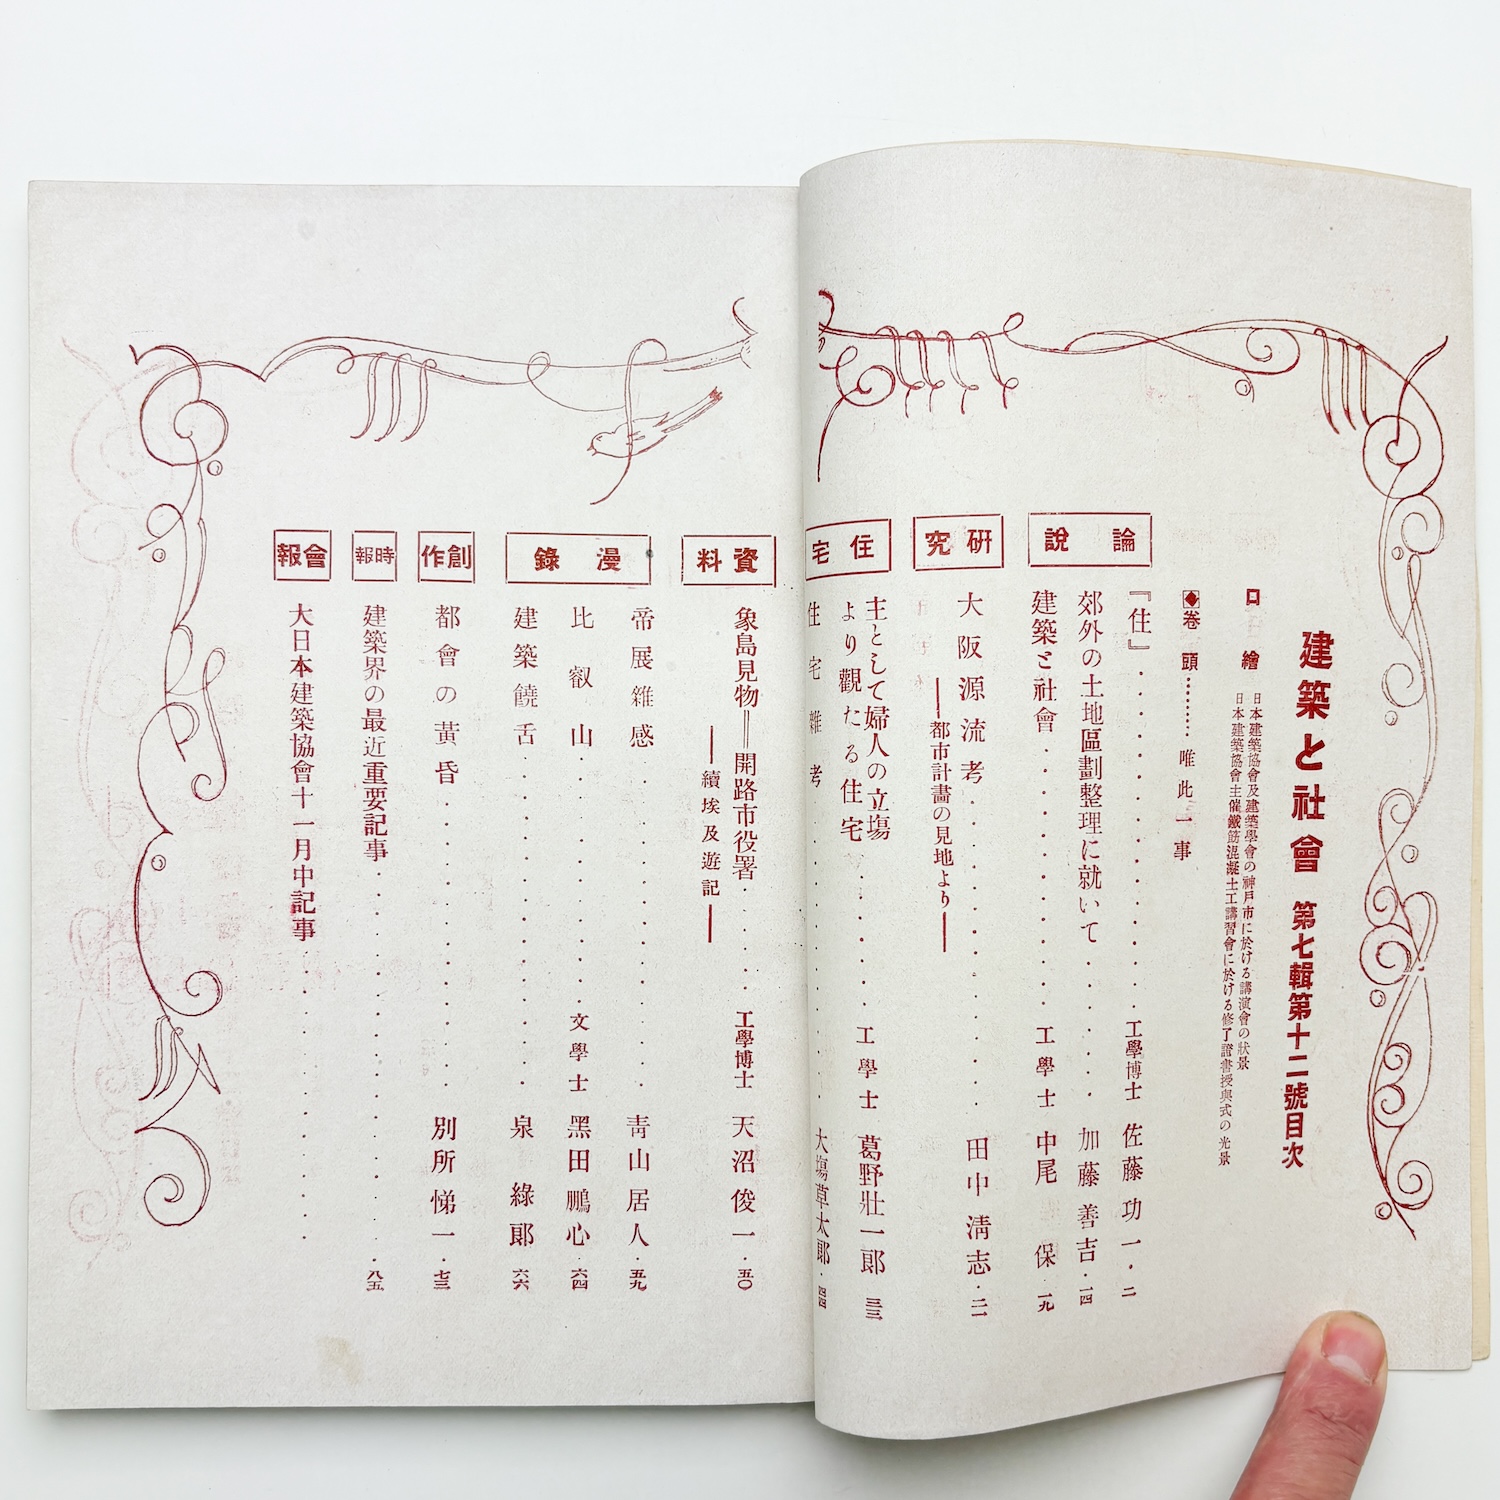 建築と社會 第七輯第十二號目次
口繪
日本建築協會及建築學會の神戸市に於ける講演會の狀景
日本建築協會主催鐵筋混凝土工講習會に於ける修了證書授與式の光景
卷頭………唯此一事
論說
『住』……工學博士 佐藤功一…二
郊外の土地區劃整理に就いて……加藤善吉…一四
建築と社會……工學士 中尾保…一九
研究
大阪源流考……田中淸志…二一
―都市計畫の見地より―
住宅
主として婦人の立塲より觀たる住宅……工學士 葛野壯一郞…三三
住宅雜考……大塲草太郞…四四
資料
象島見物＝開路市役署……工學博士 天沼俊一…五〇
―續埃及遊記―
漫錄
帝展雜感……靑山居人…五九
比叡山……文學士 黑田鵬心…六四
建築饒舌……泉綠郞…六六
創作
都會の黃昏……別所悌一…七三
時報
建築界の最近重要記事……八五
會報
大日本建築協會十一月中記事……